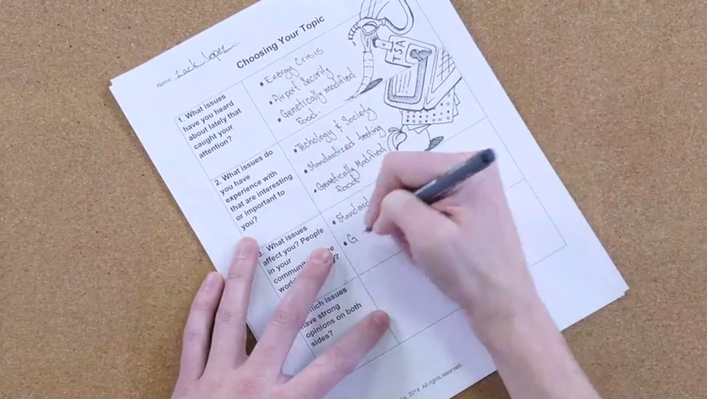 Name: Zack
Choosing Your Topic
1. What issues
have you heard
about lately that
caught your
attention?
• Energy Crisis
• Airport Security
• Genetically modified
Food
TSA
2. What issues do
you have
experience with
that are interesting
or important to
you?
• Techology & Society
• Standardized testing
• Genetically Modified
Food
3. What issues
affect you? People
in your
• Standard
• G
which issues
have strong
opinions on both
sides?
2014. All rights reserved.